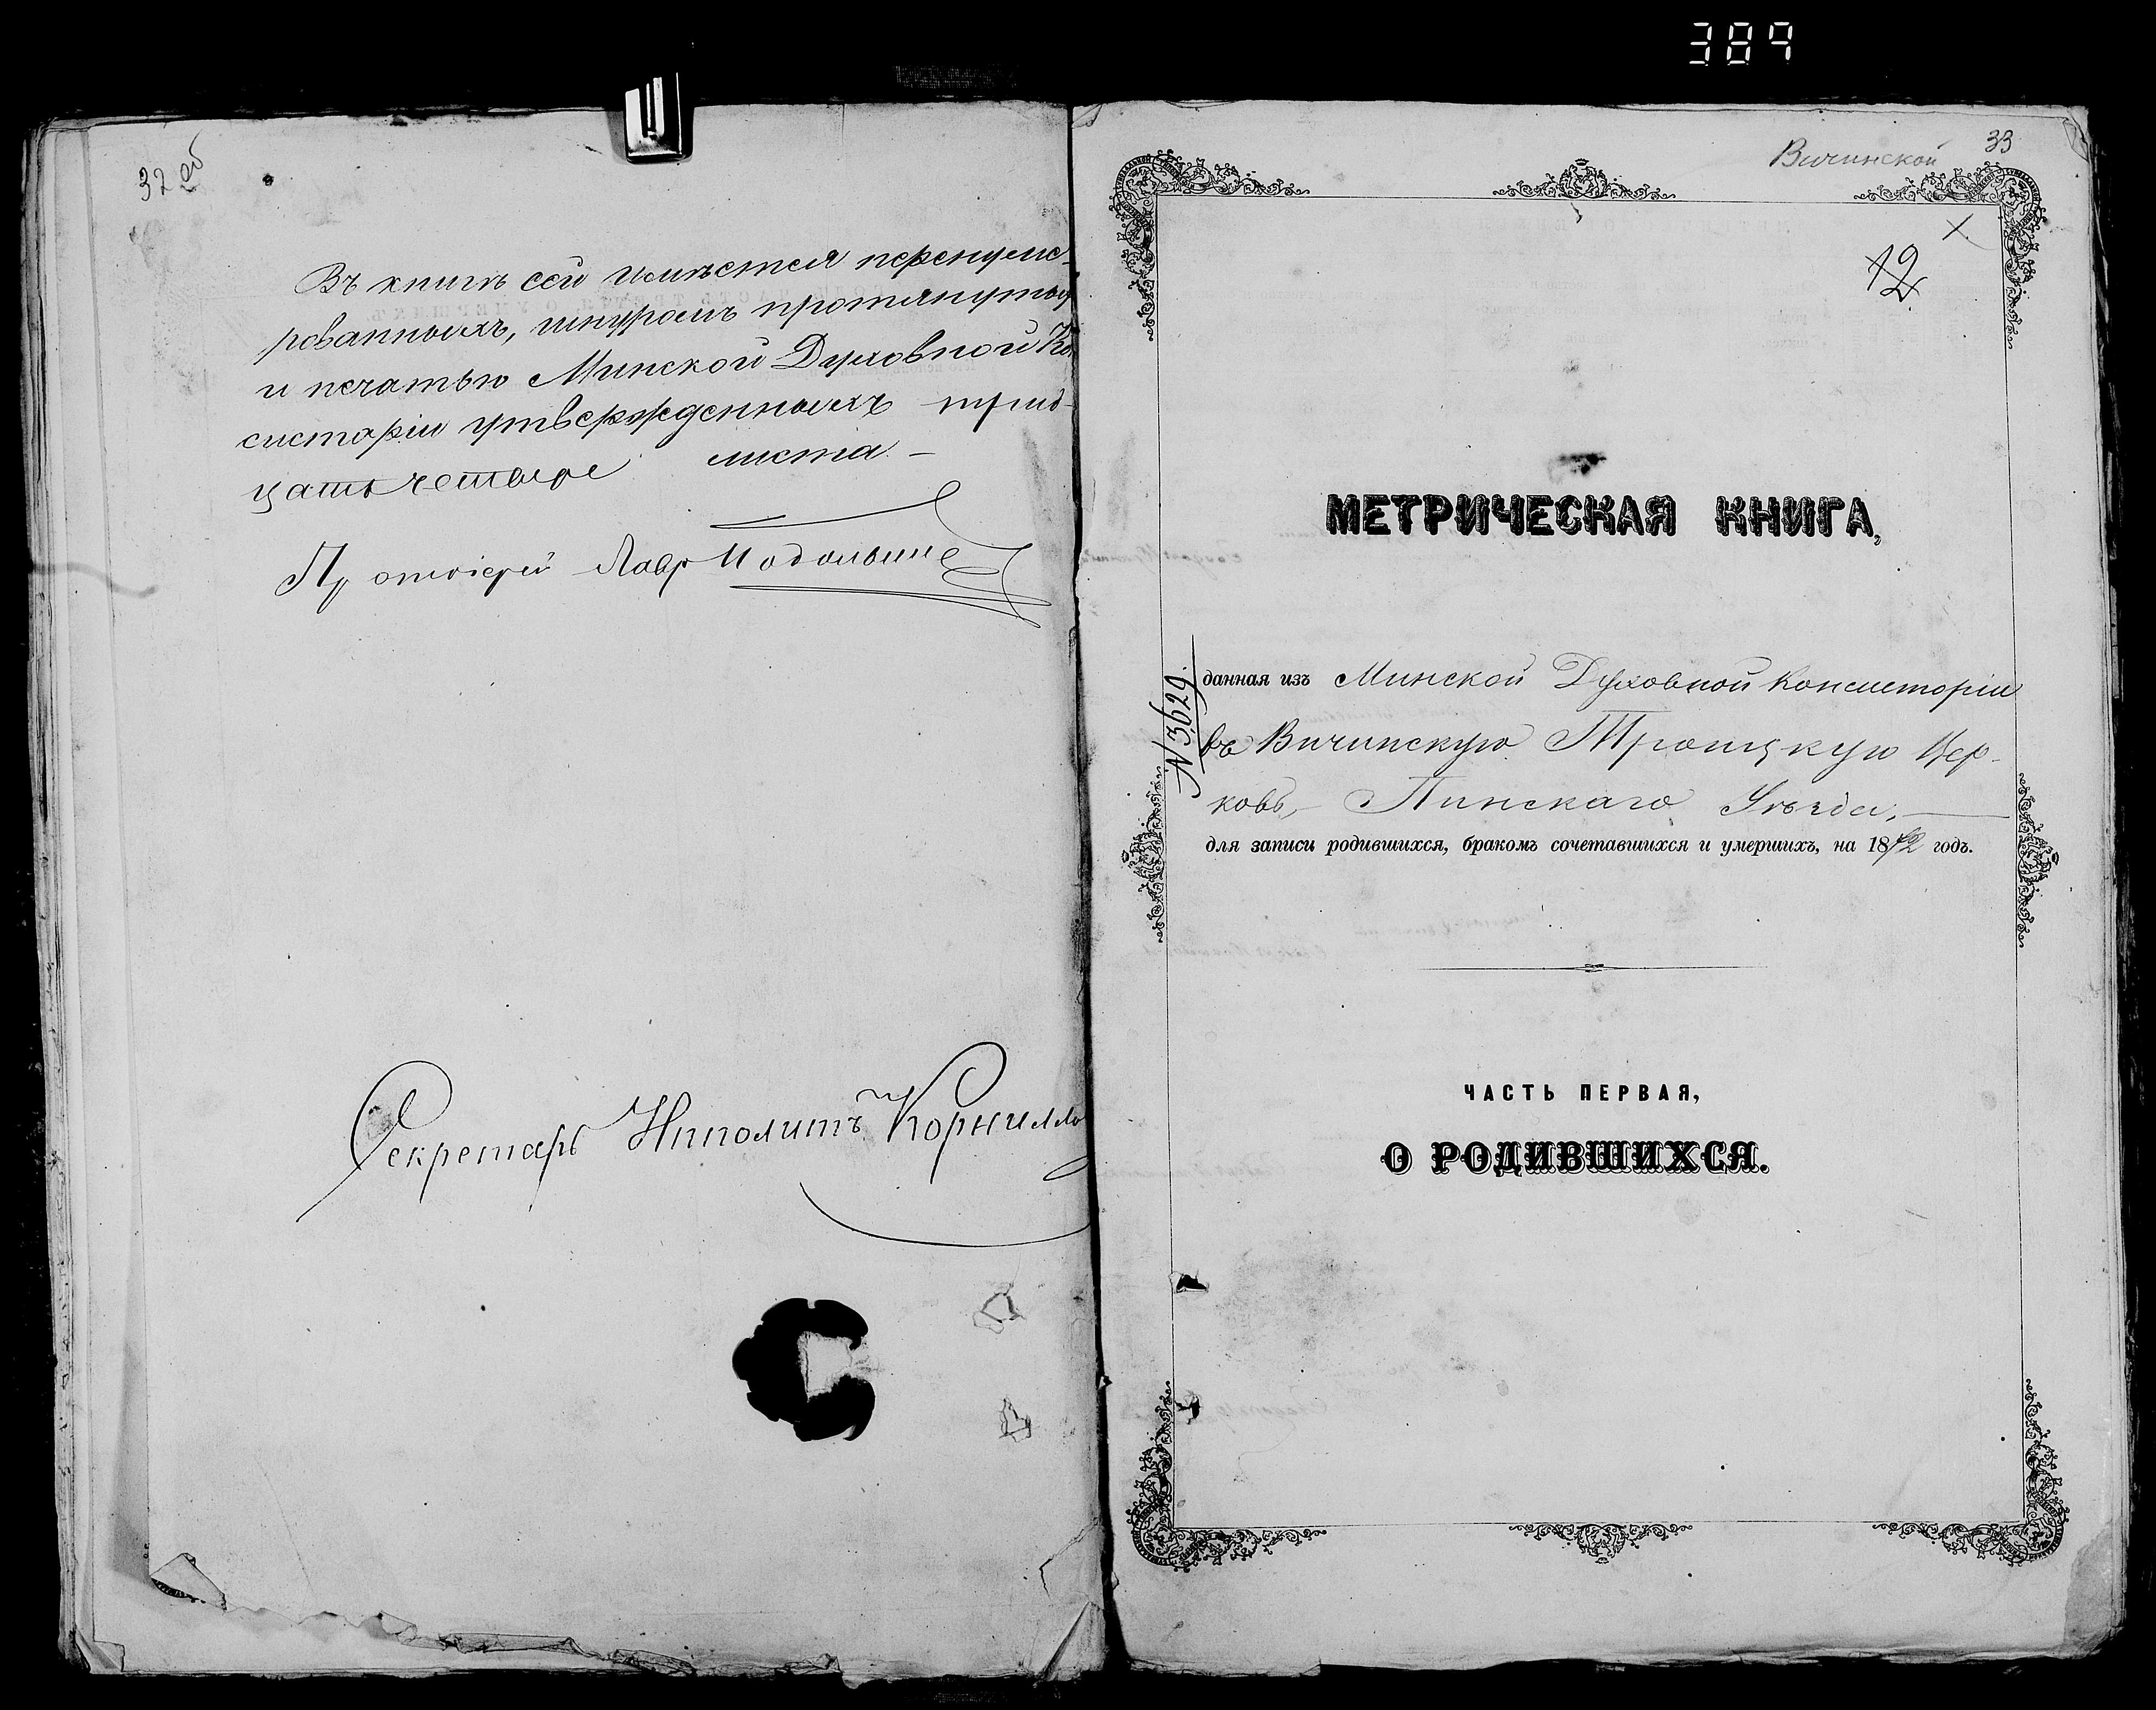 389
32 об
Въ книгѣ сей имѣется перенуме-
рованныхъ, шнуромъ протянутыхъ
и печатью Минской Духовной Ко
систоріи утвержденныхъ трид-
цать четыре листа –
Протоіерей Лавр
Секретарь Ипполитъ Корнилло
Вичинской
33
12
МЕТРИЧЕСКАЯ КНИГА,
№ 3,629.
данная изъ Минской Духовной Консисторіи
въ Вичинскую Троицкую Цер-
ковь, – Пинскаго Уѣзда, —
для записи родившихся, бракомъ сочетавшихся и умершихъ, на 1872 годъ.
ЧАСТЬ ПЕРВАЯ,
О РОДИВШИХСЯ.